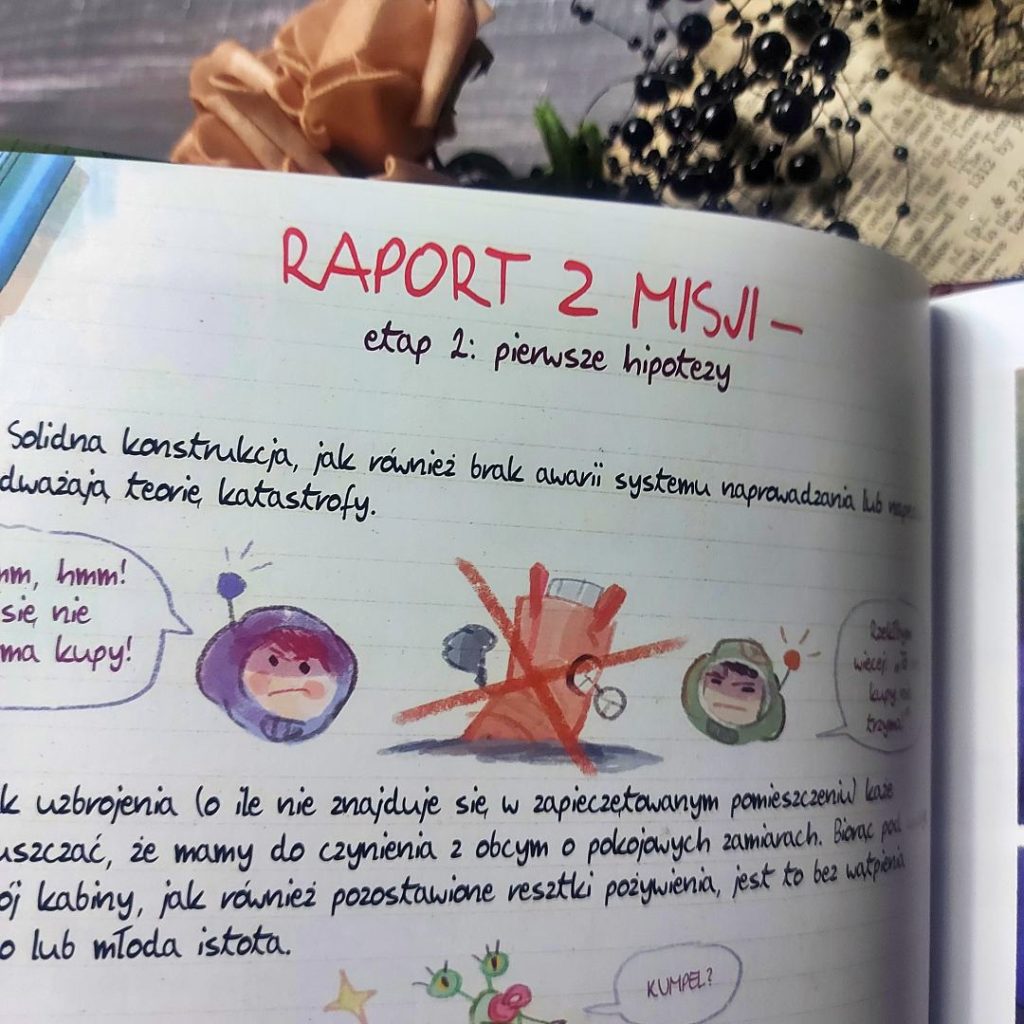 RAPORT Z MISJI –
etap 2: pierwsze hipotezy
Solidna konstrukcja, jak również brak awarii systemu naprowadzania lub
dważają teorię katastrofy.
mm, hmm!
się nie
ma kupy!
więcej „To
kupy
trzyma"
k uzbrojenia (o ile nie znajduje się w zapieczętowanym pomieszczeniu) każe
uszczać, że mamy do czynienia z obcym o pokojowych zamiarach. Biorąc pod
ój kabiny, jak również pozostawione resztki pożywienia, jest to bez wątpienia
o lub młoda istota.
KUMPEL?